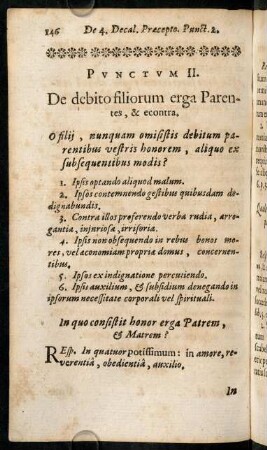 146 De 4. Decal. Precepto. Punct. 2.
PVNCTVM II.
De debito filiorum erga Paren-
tes, & econtra.
O filij, nunquam omisistis debitum pa-
rentibus vestris honorem, aliquo ex
subsequentibus modis?
1. Ipsis optando aliquod malum.
2. Ipsos contemnendo gestibus quibusdam de-
dignabundis.
3. Contra illos proferendo verba rudia, arro-
gantia, iniuriosa, irrisoria.
4. Ipsis non obsequendo in rebus bonos mo-
res, vel œconomiam propriæ domus, concernen-
tibus.
5. Ipsos ex indignatione percutiendo.
6. Ipsis auxilium, & subsidium denegando in
ipsorum necessitate corporali vel spirituali.
In quo consistit honor erga Patrem,
& Matrem?
REsp. In quatuor potissimum: in amore, re-
verentiâ, obedientiâ, auxilio.
In